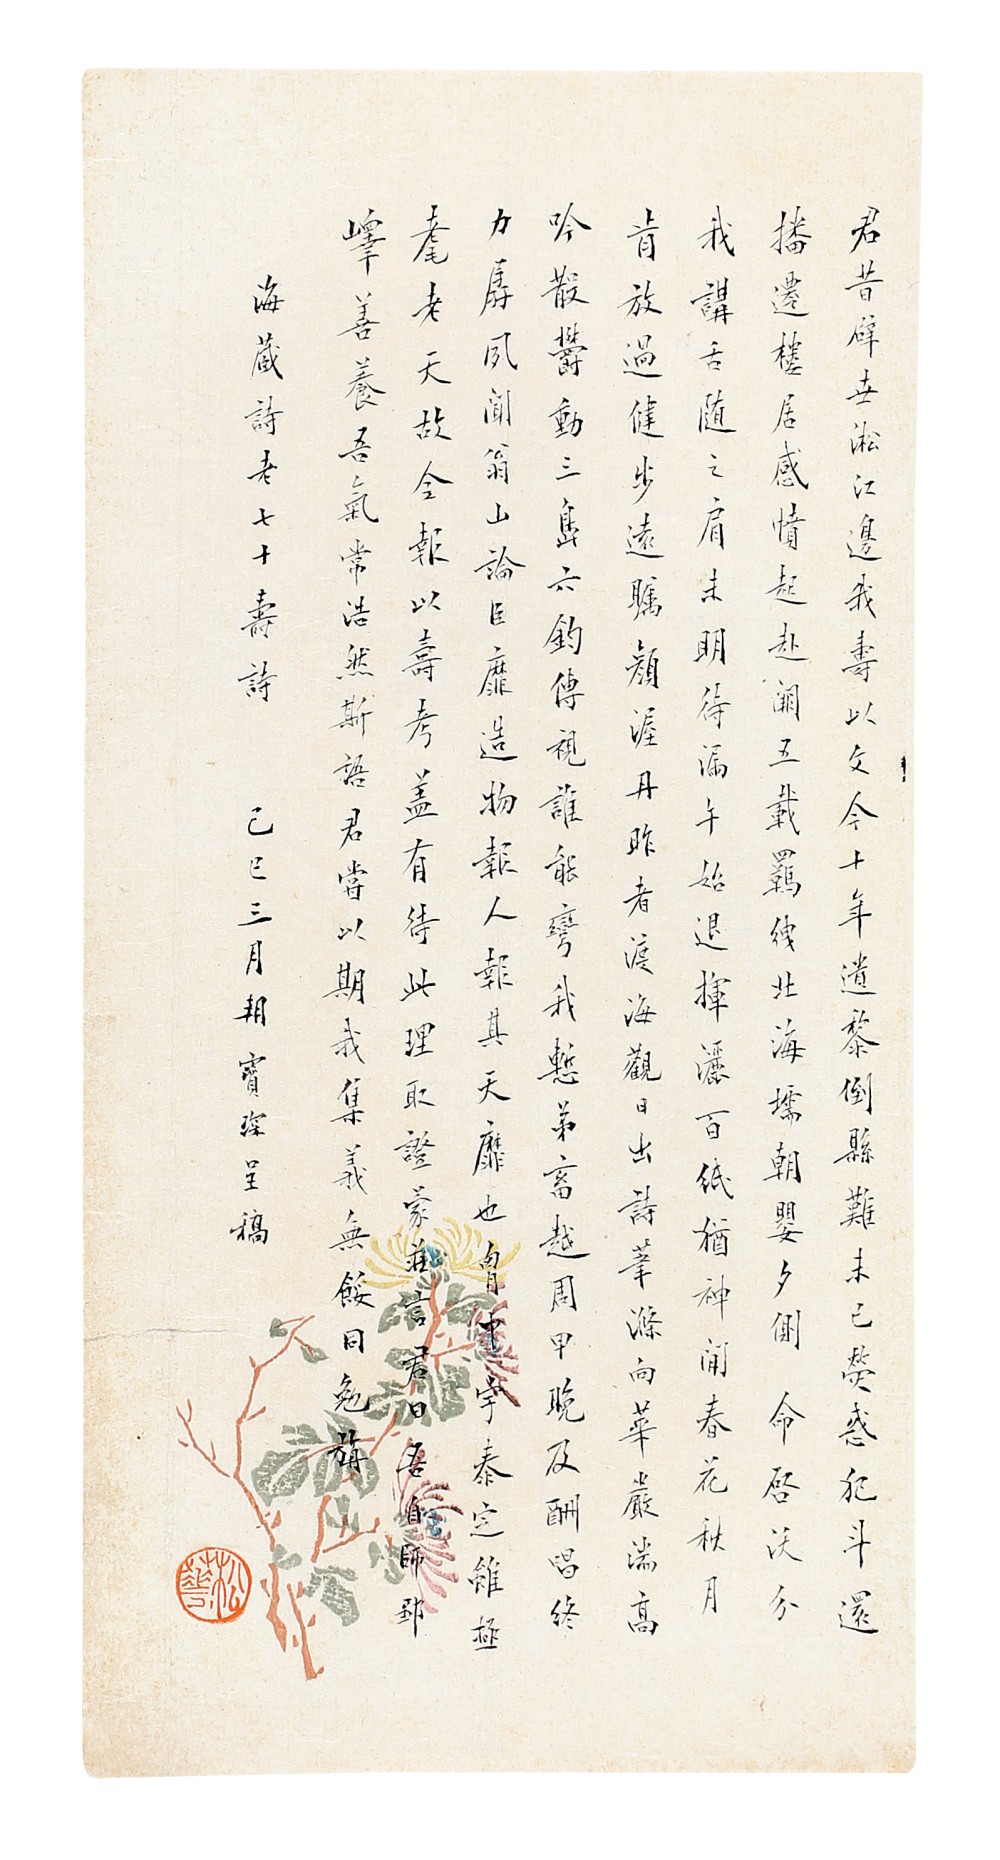 君昔辟世淞江邊我壽以文今十年遺黎倒縣難未已熒惑犯斗還
播遷樓居感憤起赴闕五載羈紲北海壖朝嬰夕側命啓沃分
我講舌隨之肩未明待漏午始退揮灑百紙猶神閒春花秋月
肯放過健步遠矚顏渥丹昨者渡海觀日出詩筆滌向華嚴湍高
吟散鬱動三島六鈞傳視誰能彎我慙弟畜越周甲晚及酬唱終
力孱夙聞翁山論臣靡造物報人報其天靡也胷中宇泰定雖極
耄老天故全報以壽考蓋有待此理取證蒙莊言君曰吾自師鄒
嶧善養吾氣常浩然斯語君嘗以期我集義無餒同勉旃
海藏詩老七十壽詩 己巳三月朔寶琛呈稿
松花